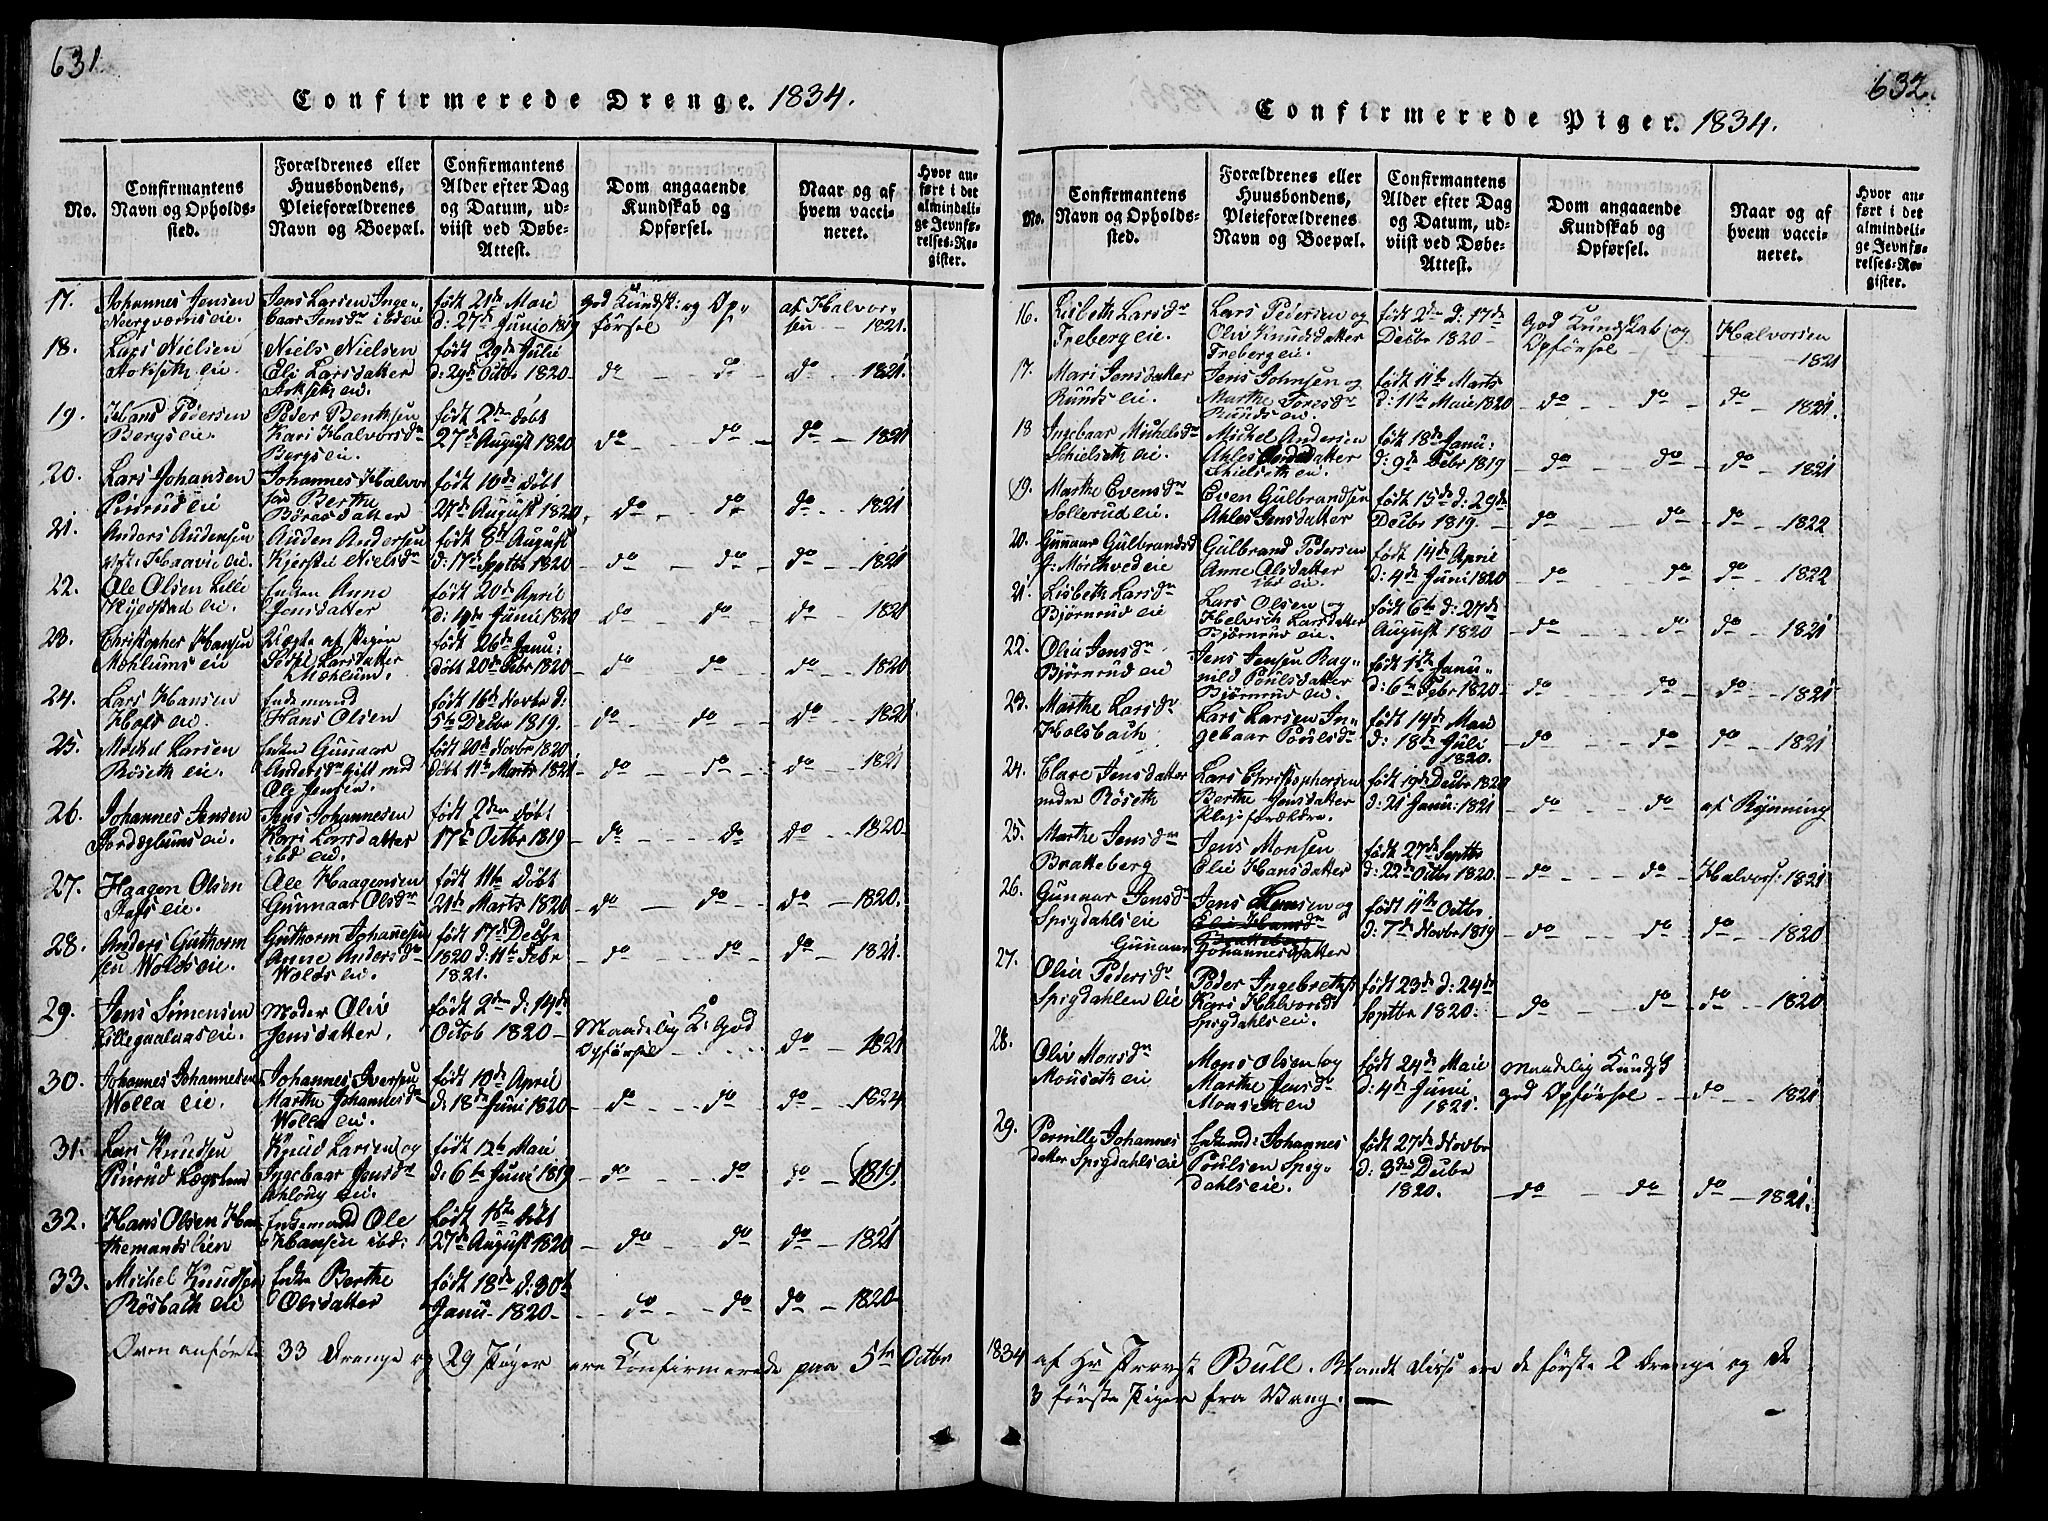 631
Confirmerede Drenge. 1834.
No.
Confirmantens
Navn og Opholds-
sted.
Forældrenes eller
Huusbondens,
Pleieforældrenes
Navn og Boepæl.
Confirmantens
Alder efter Dag
og Datum, ud-
viist ved Døbe-
Attest.
Dom angaaende
Kundskab og
Opførsel.
Naar og af
hvem vacci-
neret.
Hvor an-
ført i det
almindeli-
ge Jevnfø-
relses-Re-
gister.
17. Johannes Jensen
eie.
Jens Larsen Inge-
baar Jensdr ibd eie
født 21de Mai
d: 27de Junio 1819
God Kundsk: og Op-
førsel
af Halvor-
sen - 1821.
18. Lars Nielsen
eie.
Niels Nielsen
Eli Larsdatter
eie.
født 29de Julie
d: 29de Octbr 1820
do - do do - 1821.
19. Hans Pedersen
Bergs eie.
Peder Bentsen
Kari Halvorsdr
Bergs eie.
født 2den døbt
27de August 1820
do - do - do - 1821
20. Lars Johansen
eie
Johannes Halvor
sen Berthe
datter
født 10de døbt
27de August 1820
do - do do - 1821
21. Anders Audensen
Haavie eie.
Auden Andersen
Kjerstie Nielsdr
født 8de August
d: 17de Septbr 1820
do - do do - 1821
22. Ole Olsen Lille
Kyldstad eie.
Enken Anne
Jensdatter
født 20de April
d: 19de Junii 1820
do - do do - 1821
23. Christopher Hansen
Mæhlums eie
af Pigen
Larsdatter
Mæhlum.
født 26de Janu:
døbt 20de Febr 1820
do - do do - 1820
24. Lars Hansen
Hols eie.
Enkemand
Hans Olsen
født 16de Novbr d:
5te Decbr 1819.
do - do do - 1821
25. Mickel Larsen
Røseth eie.
Enken Gunnaar
Andersdr gift med
Ole Jensen.
født 20de Novbr 1820
døbt 11te Marts 1821
do - do do - 1821
26. Johannes Jensen
eie.
Jens Johannesen
Kari Larsdatter
ibd eie.
født 2den døbt
17de Octbr 1819
do - do do - 1820
27. Haagen Olsen
eie.
Ole Haagensen
Gunnaar Olsdr
født 11te døbt
21de Marts 1820
do - do do - 1820.
28. Anders Guthorm
sen Wolds eie.
Guthorm Johannesen
Anne Andersdr
Wolds eie.
født 17de Decbr
1820 d: 11te Febr
1821.
do - do do - 1821.
29. Jens Simensen
Lillegaalaas eie.
Moder Oliv
Jensdatter.
født 2den d: 14de
Octob 1820
Maadelig K: God
Opførsel
do - 1821
30. Johannes Johannesen
Wolla eie.
Johannes Iversen
Marthe Johannesdr
Wolla eie.
født 10de April
d: 18de Juni 1820
do - do do - 1824
31. Lars Knudsen
Knud Larsen og
Ingebaar Jensdr
eie.
født 12te Mai
d: 6te Juni 1819
do - do do - 1819.
32. Hans Olsen
Enkemand Ole
Hansen ibd:
født 18de døbt
27de August 1820
do - do do - 1821
33. Michel Knudsen
Røsbach eie
Enke Berthe
Olsdatter
født 18de d: 30te
Janu- 1820
do - do do - 1820
Oven anførte 33 Drenge og 29 Piger ere Confirmerede paa 5te Octbr
632.
Confirmerede Piger. 1834.
No.
Confirmantens
Navn og Opholds-
sted.
Forældrenes eller
Huusbondens,
Pleieforældrenes
Navn og Boepæl.
Confirmantens
Alder efter Dag
og Datum, ud-
viist ved Døbe-
Attest.
Dom angaaende
Kundskab og
Opførsel.
Naar og af
hvem vacci-
neret.
Hvor an-
ført i det
almindeli-
ge Jevnfø-
relses-Re-
gister.
16. Lisbeth Larsdr
Freberg eie.
Lars Pedersen og
Oliv Knudsdatter
Freberg eie.
født 2den d: 17de
Decbr 1820
God Kundskab og
Opførsel
Halvorsen
1821
17. Mari Jensdatter
Ruuds eie.
Jens Johnsen og
Marthe Toresdr
Ruuds eie.
født 11te Marts
d: 11te Maie 1820
do - do do - 1821.
18 Ingebaar Michelsdr
Schielseth eie.
Michel Andersen
Ahles
Schielseth eie.
født 18de Janu:
d: 9de Febr 1819
do - do do - 1821
19. Marthe Evensdr
Sollerud eie.
Even Gulbrandsen
Ahles Jensdatter
født 15de d: 29de
Decbr 1819.
do - do do - 1822
20. Gunnaar Gulbrandsd
eie
Gulbrand Pedersen
Anne Olsdatter
ibd eie.
født 14de April
d: 4de Juni 1820
do - do do - 1822
21. Lisbeth Larsdr
Bjørnrud eie
Lars Olsen og
Helvich Larsdatter
Bjørnrud eie.
født 6te d: 27de
August 1820
do - do do - 1821
22. Oliv Jensdr
Bjørnrud eie
Jens Jensen Rag-
nild Poulsdatter
Bjørnrud eie.
født 1ste Janu-
d: 6te Febr 1820
do - do do - 1821
23. Marthe Larsdr
Holsbach
Lars Larsen In-
gebaar Poulsdr
født 14de Mai
d: 18de Juli
1820.
do - do do - 1821
24. Clare Jensdatter
nedre Røseth
Lars Christophersen
Berthe Jensdatter
Plejeforældre.
født 19de Decbr 1820
d: 21 Janu: 1821
do - do af Rynning
25. Marthe Jensdr
Bratteberg
Jens Monsen
Elie Hansdatter
født 27de Septbr
d: 22de Octbr 1820.
do - do Halvors: 1821
26. Gunnar Jensdr
Spigdahls eie
Jens og
Elie Hansdr
Bratteberg
Gunnaar Johannesdatter
født 11te Octbr
d: 7de Novbr 1819
do - do do - 1820
27. Oliv Pedersdr
Spigdahlen eie
Peder Ingebrethss
Kari Halvorsdt
Spigdahls eie.
født 23de d: 24de
Septbr 1820.
do - do do - 1820
28. Oliv Monsdr
Monseth eie
Mons Olsen og
Marthe Jensdr
Monseth eie
født 24de Maie
d: 4de Junii
1821.
Maadelig Kundsk
God Opførsel
do - 1821
29. Pernille Johannes
datter Spigdahls eie
Enkemd: Johannes
Poulsen Spig-
dahls eie.
født 27de Novbr
d: 3die Decbr
1820.
do - do do - 1821.
1834 af Hr Provst Bull. Blandt disse ere de første 2 Drenge og de
3 første Piger fra Vang.